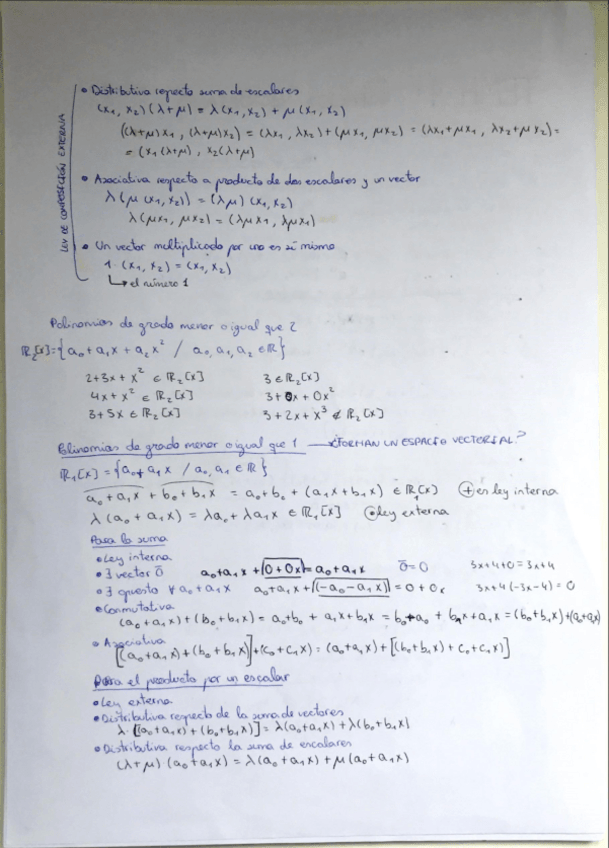 LEY DE COMPOSICIÓN EXTERNA
• Distributiva respecto suma de escalares
(x₁, x₂)(λ+μ) = λ(x₁, x₂) + μ(x₁, x₂)
((λ+μ)x₁, (λ+μ)x₂) = (λx₁, λx₂) + (μx₁, μx₂) = (λx₁+μx₁, λx₂+μx₂) =
= (x₁(λ+μ), x₂(λ+μ)
• Asociativa respecto a producto de dos escalares y un vector
λ(μ(x₁, x₂)) = (λμ)(x₁, x₂)
λ(μx₁, μx₂) = (λμx₁, λμx₁)
• Un vector multiplicado por uno es sí mismo
1·(x₁, x₂) = (x₁, x₂)
↳ el número 1
Polinomios de grado menor o igual que 2
ℝ₂[x] = {a₀+a₁x+a₂x² / a₀, a₁, a₂ ∈ ℝ}
2+3x+x² ∈ ℝ₂[x] 3 ∈ ℝ₂[x]
4x+x² ∈ ℝ₂[x] 3+0x+0x²
3+5x ∈ ℝ₂[x] 3+2x+x³ ∉ ℝ₂[x]
Polinomios de grado menor o igual que 1 → ¿FORMAN UN ESPACIO VECTORIAL?
ℝ₁[x] = {a₀+a₁x / a₀, a₁ ∈ ℝ}
a₀+a₁x + b₀+b₁x = a₀+b₀ + (a₁x+b₁x) ∈ ℝ₁[x] ⊕ en ley interna
λ(a₀+a₁x) = λa₀+λa₁x ∈ ℝ₁[x] ⊙ ley externa
Para la suma
• Ley interna
• ∃ vector 0̄ a₀+a₁x+(0+0x) = a₀+a₁x 0̄=0 3x+4+0=3x+4
• ∃ opuesto ∀ a₀+a₁x a₀+a₁x+(-a₀-a₁x) = 0+0x 3x+4(-3x-4)=0
• Conmutativa
(a₀+a₁x)+(b₀+b₁x) = a₀+b₀ + a₁x+b₁x = b₀+a₀ + b₁x+a₁x = (b₀+b₁x)+(a₀+a₁x)
• Asociativa
[(a₀+a₁x)+(b₀+b₁x)]+(c₀+c₁x) = (a₀+a₁x)+[(b₀+b₁x)+c₀+c₁x)]
Para el producto por un escalar
• Ley externa
• Distributiva respecto de la suma de vectores
λ·[(a₀+a₁x)+(b₀+b₁x)] = λ(a₀+a₁x)+λ(b₀+b₁x)
• Distributiva respecto la suma de escalares
(λ+μ)·(a₀+a₁x) = λ(a₀+a₁x)+μ(a₀+a₁x)